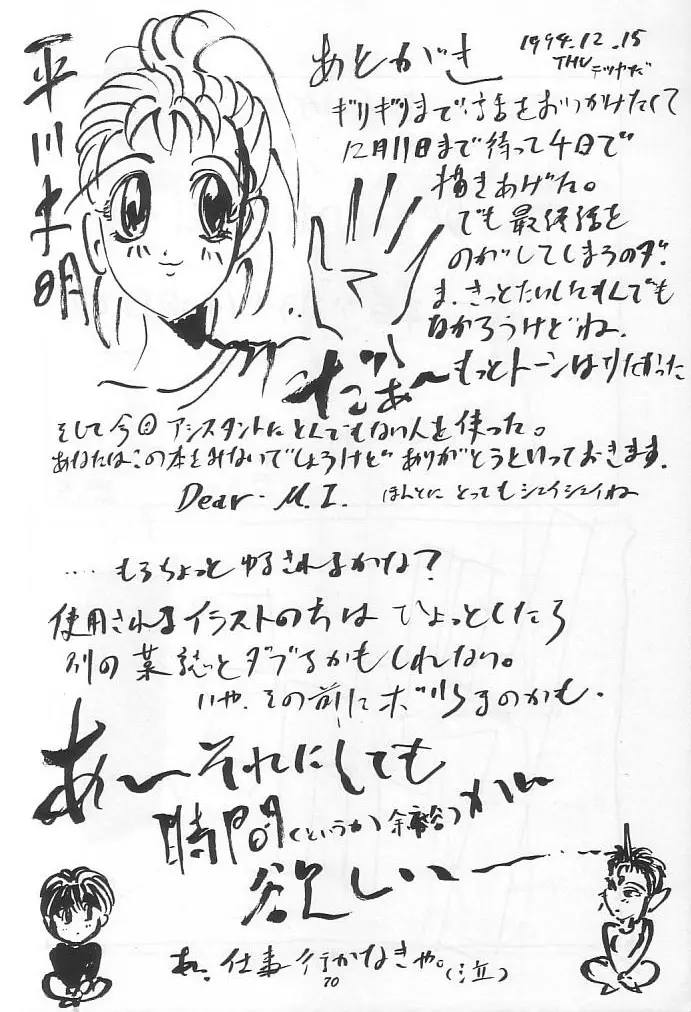 あとがき
1994.12.15
THU
テツヤだ
平川
明
ギリギリまで話をおいかけたくて
12月11日まで待って4日で
描きあげた。
でも最終話を
のがしてしまうのダ。
ま、きっとたいしたもんでも
なかろうけどね。
だぁ〜もっとトーンはりたかった
そして今回アシスタントにとんでもない人を使った。
あなたはこの本をみないでしょうけどありがとうといっておきます。
Dear・M.I. ほんとに とってもシェイシェイね
‥‥もうちょっとゆるされるかな?
使用されるイラストのちは ひょっとしたら
別の某誌とダブるかもしれない。
いや、その前にボツになるのかも。
あ〜それにしても
時間(というか余裕)が
欲しい〜
あ、仕事行かなきゃ。(泣)
70